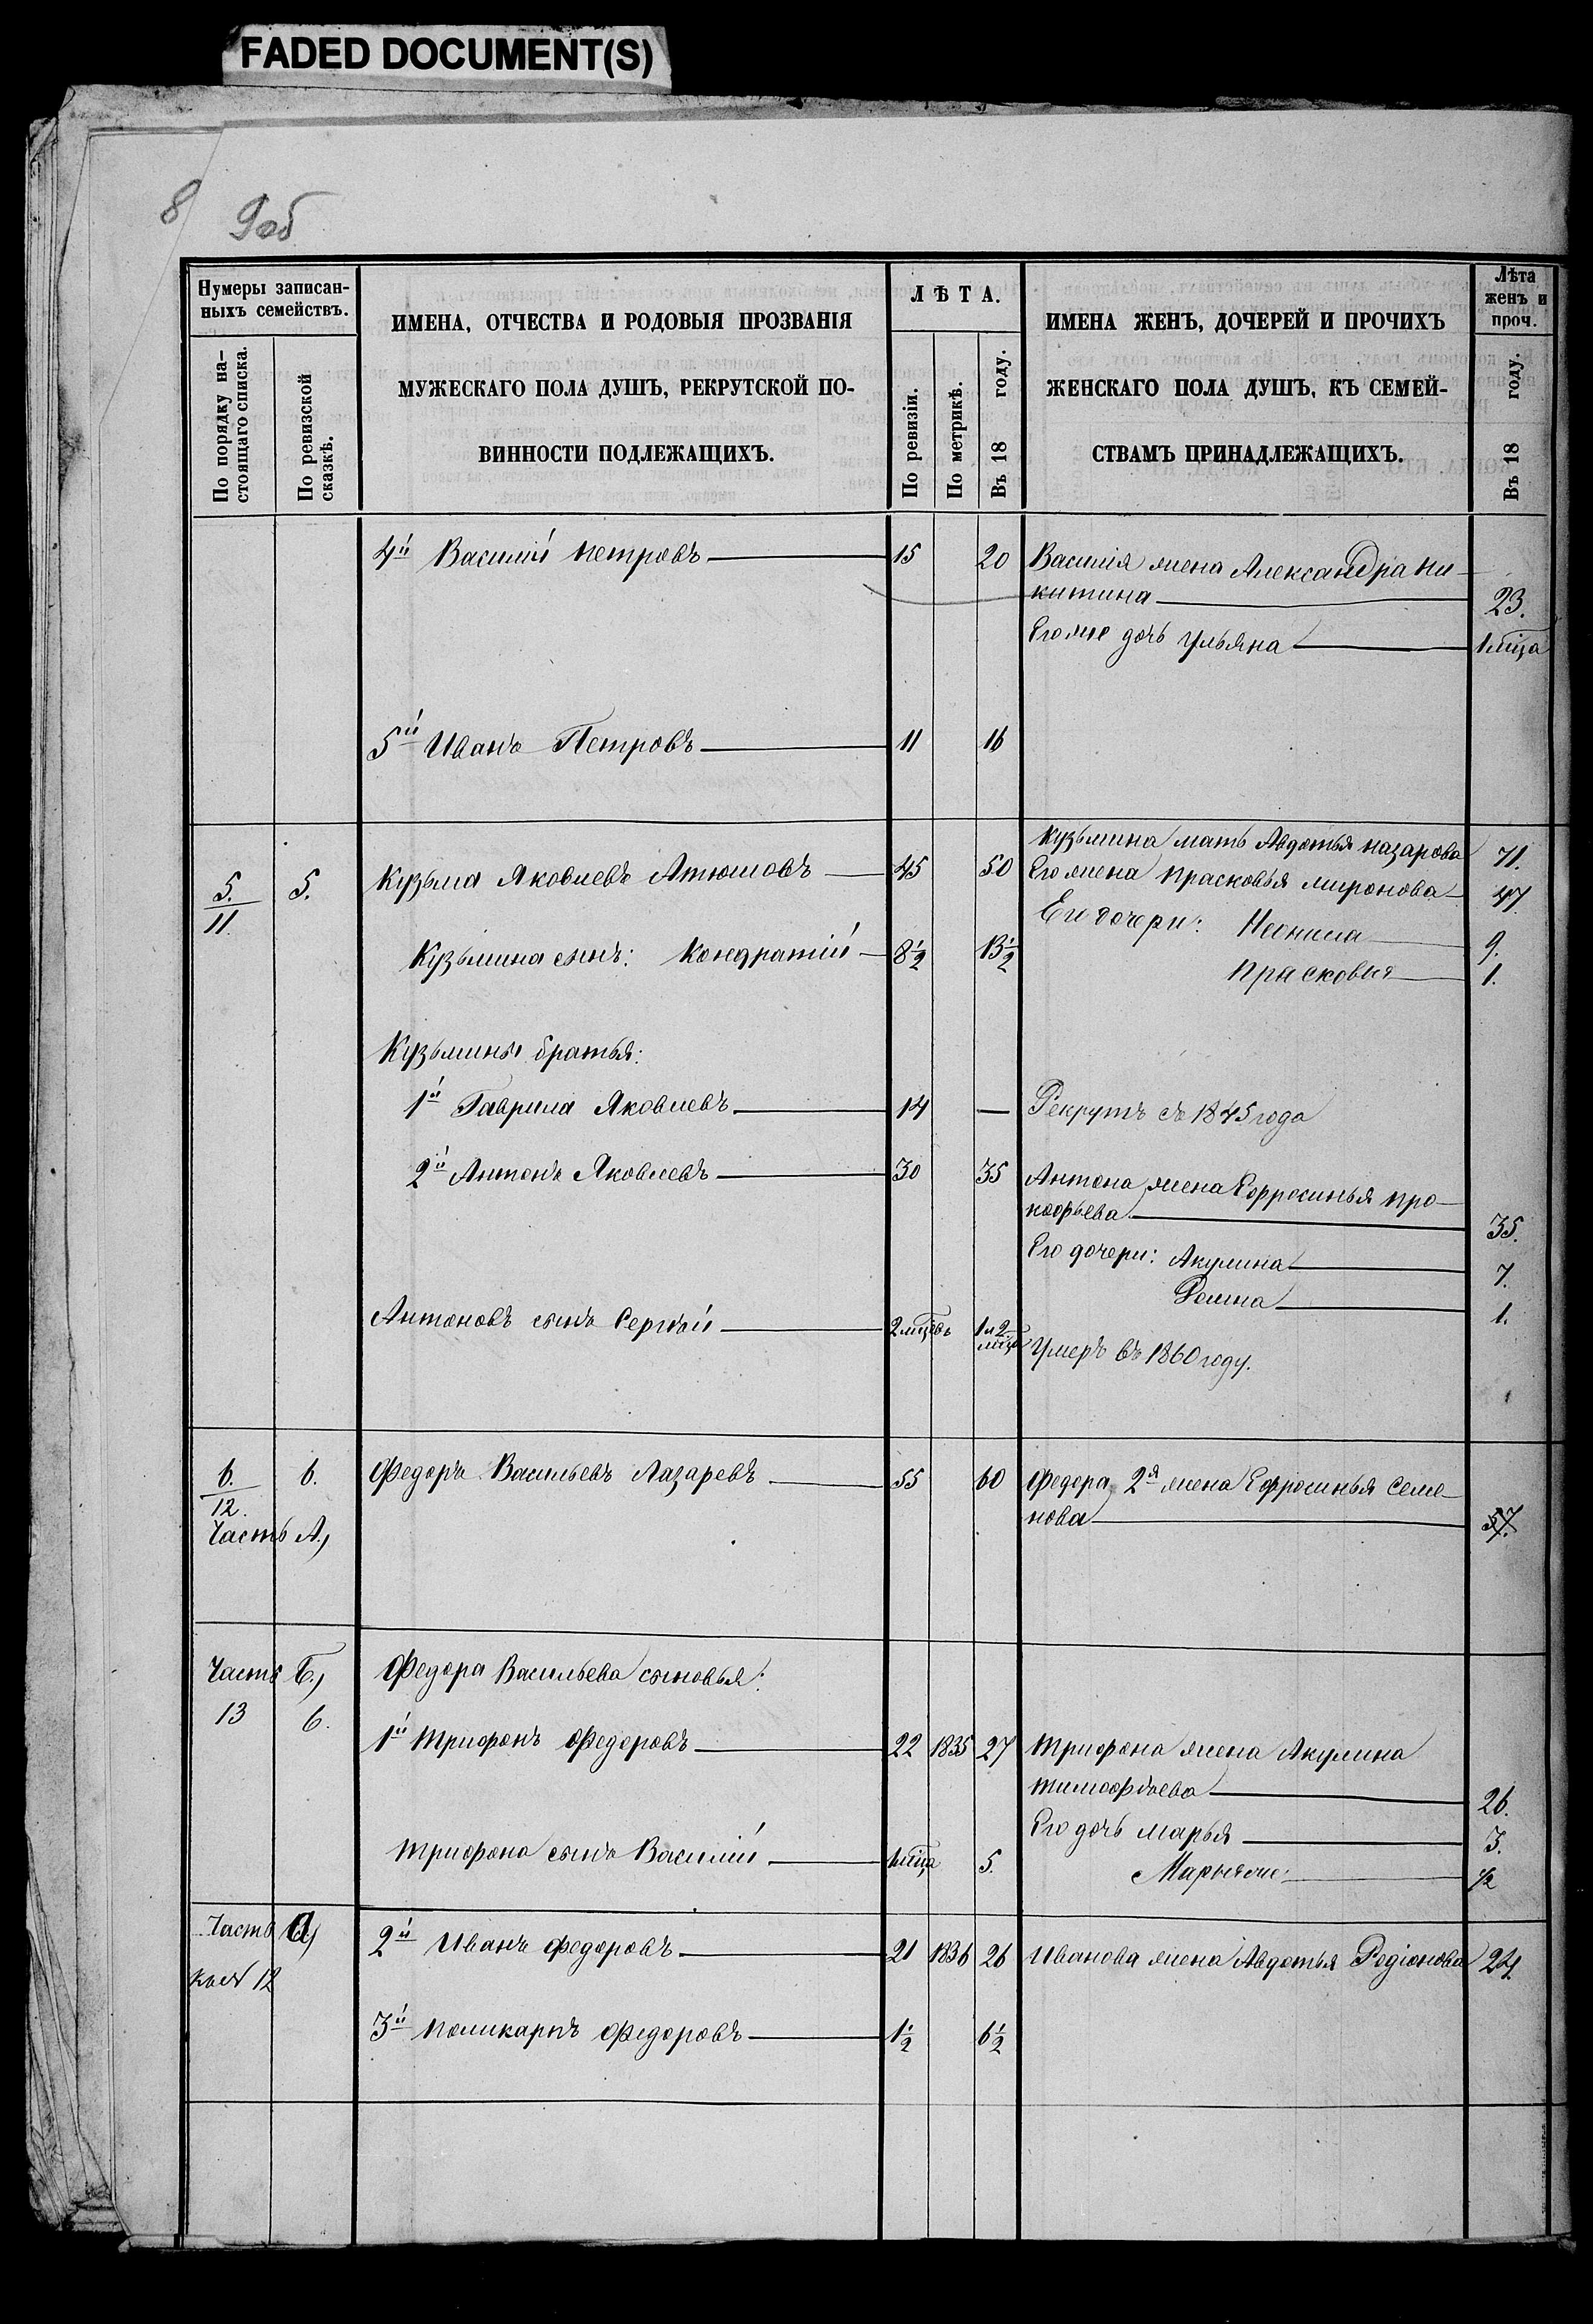 FADED DOCUMENT(S)
8 9об
Нумеры записан-
ныхъ семействъ.
По порядку на-
стоящаго списка.
По ревизской
сказкѣ.
ИМЕНА, ОТЧЕСТВА И РОДОВЫЯ ПРОЗВАНІЯ
МУЖЕСКАГО ПОЛА ДУШЪ, РЕКРУТСКОЙ ПО-
ВИННОСТИ ПОДЛЕЖАЩИХЪ.
ЛѢТА.
По ревизіи.
По метрикѣ.
Въ 18 году.
ИМЕНА ЖЕНЪ, ДОЧЕРЕЙ И ПРОЧИХЪ
ЖЕНСКАГО ПОЛА ДУШЪ, КЪ СЕМЕЙ-
СТВАМЪ ПРИНАДЛЕЖАЩИХЪ.
Лѣта
женъ и
проч.
Въ 18 году.
4й Василий Петровъ 15 20 Василія жена Александра Ни-
китина 23.
Его же дочь Ульяна 1 мца
5й Иванъ Петровъ 11 16
Кузьмина мать Авдотья Назарова 71.
5. 5. Кузьма Яковлевъ Атюшовъ 45 50 Его жена Прасковья Миронова 47
11.
Его дочери: Неонила 9.
Кузьмина сынъ: Кондратій 8½ 13½
Прасковья 1.
Кузьмины братья:
1й Гаврила Яковлевъ 14 — Рекрутъ съ 1845 года
2й Антонъ Яковлевъ 30 35 Антона жена Ефросинья Про-
кофьева 35.
Его дочери: Акулина 7.
1.
Антоновъ сынъ Сергѣй 2 мцевъ 1 и 2 мца Умеръ въ 1860 году.
6. 6. Федоръ Васильевъ Лазаревъ 55 60 Федора 2я жена Ефросинья Семе-
12.
нова 57.
Часть А,
Часть Б, Федора Васильева сыновья:
13 6.
1й Трифонъ Федоровъ 22 1835 27 Трифона жена Акулина
Тимофѣева 26.
Его дочь Марья 3.
Трифона сынъ Василій 1 мца 5.
½
Часть а, 2й Иванъ Федоровъ 21 1836 26 Иванова жена Авдотья Родіонова 24.
къ № 12
3й Поликарпъ Федоровъ 1½ 6½